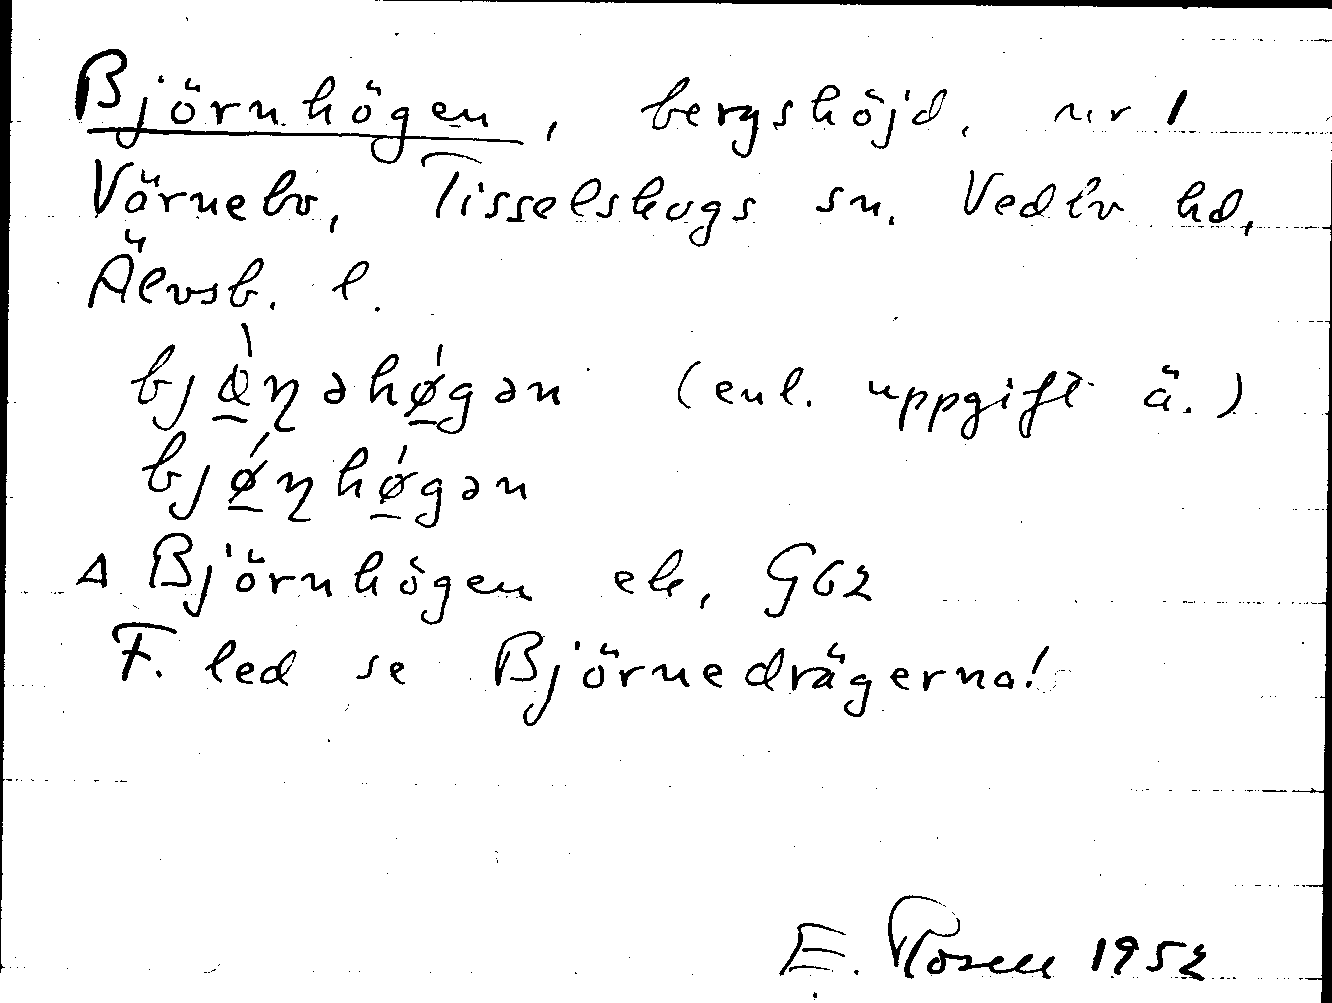 Björnhögen, bergshöjd, nr 1
Vörnebo, Tisselskogs sn. Vedbo hd,
Älvsb. l.
bjø̠̀ɳəhǿ̠gən (enl. uppgift ä.)
bjǿ̠ɳhǿ̠gən
Δ Björnhögen ek, G62
F. led se Björnedrägerna!
E. Rosell 1952